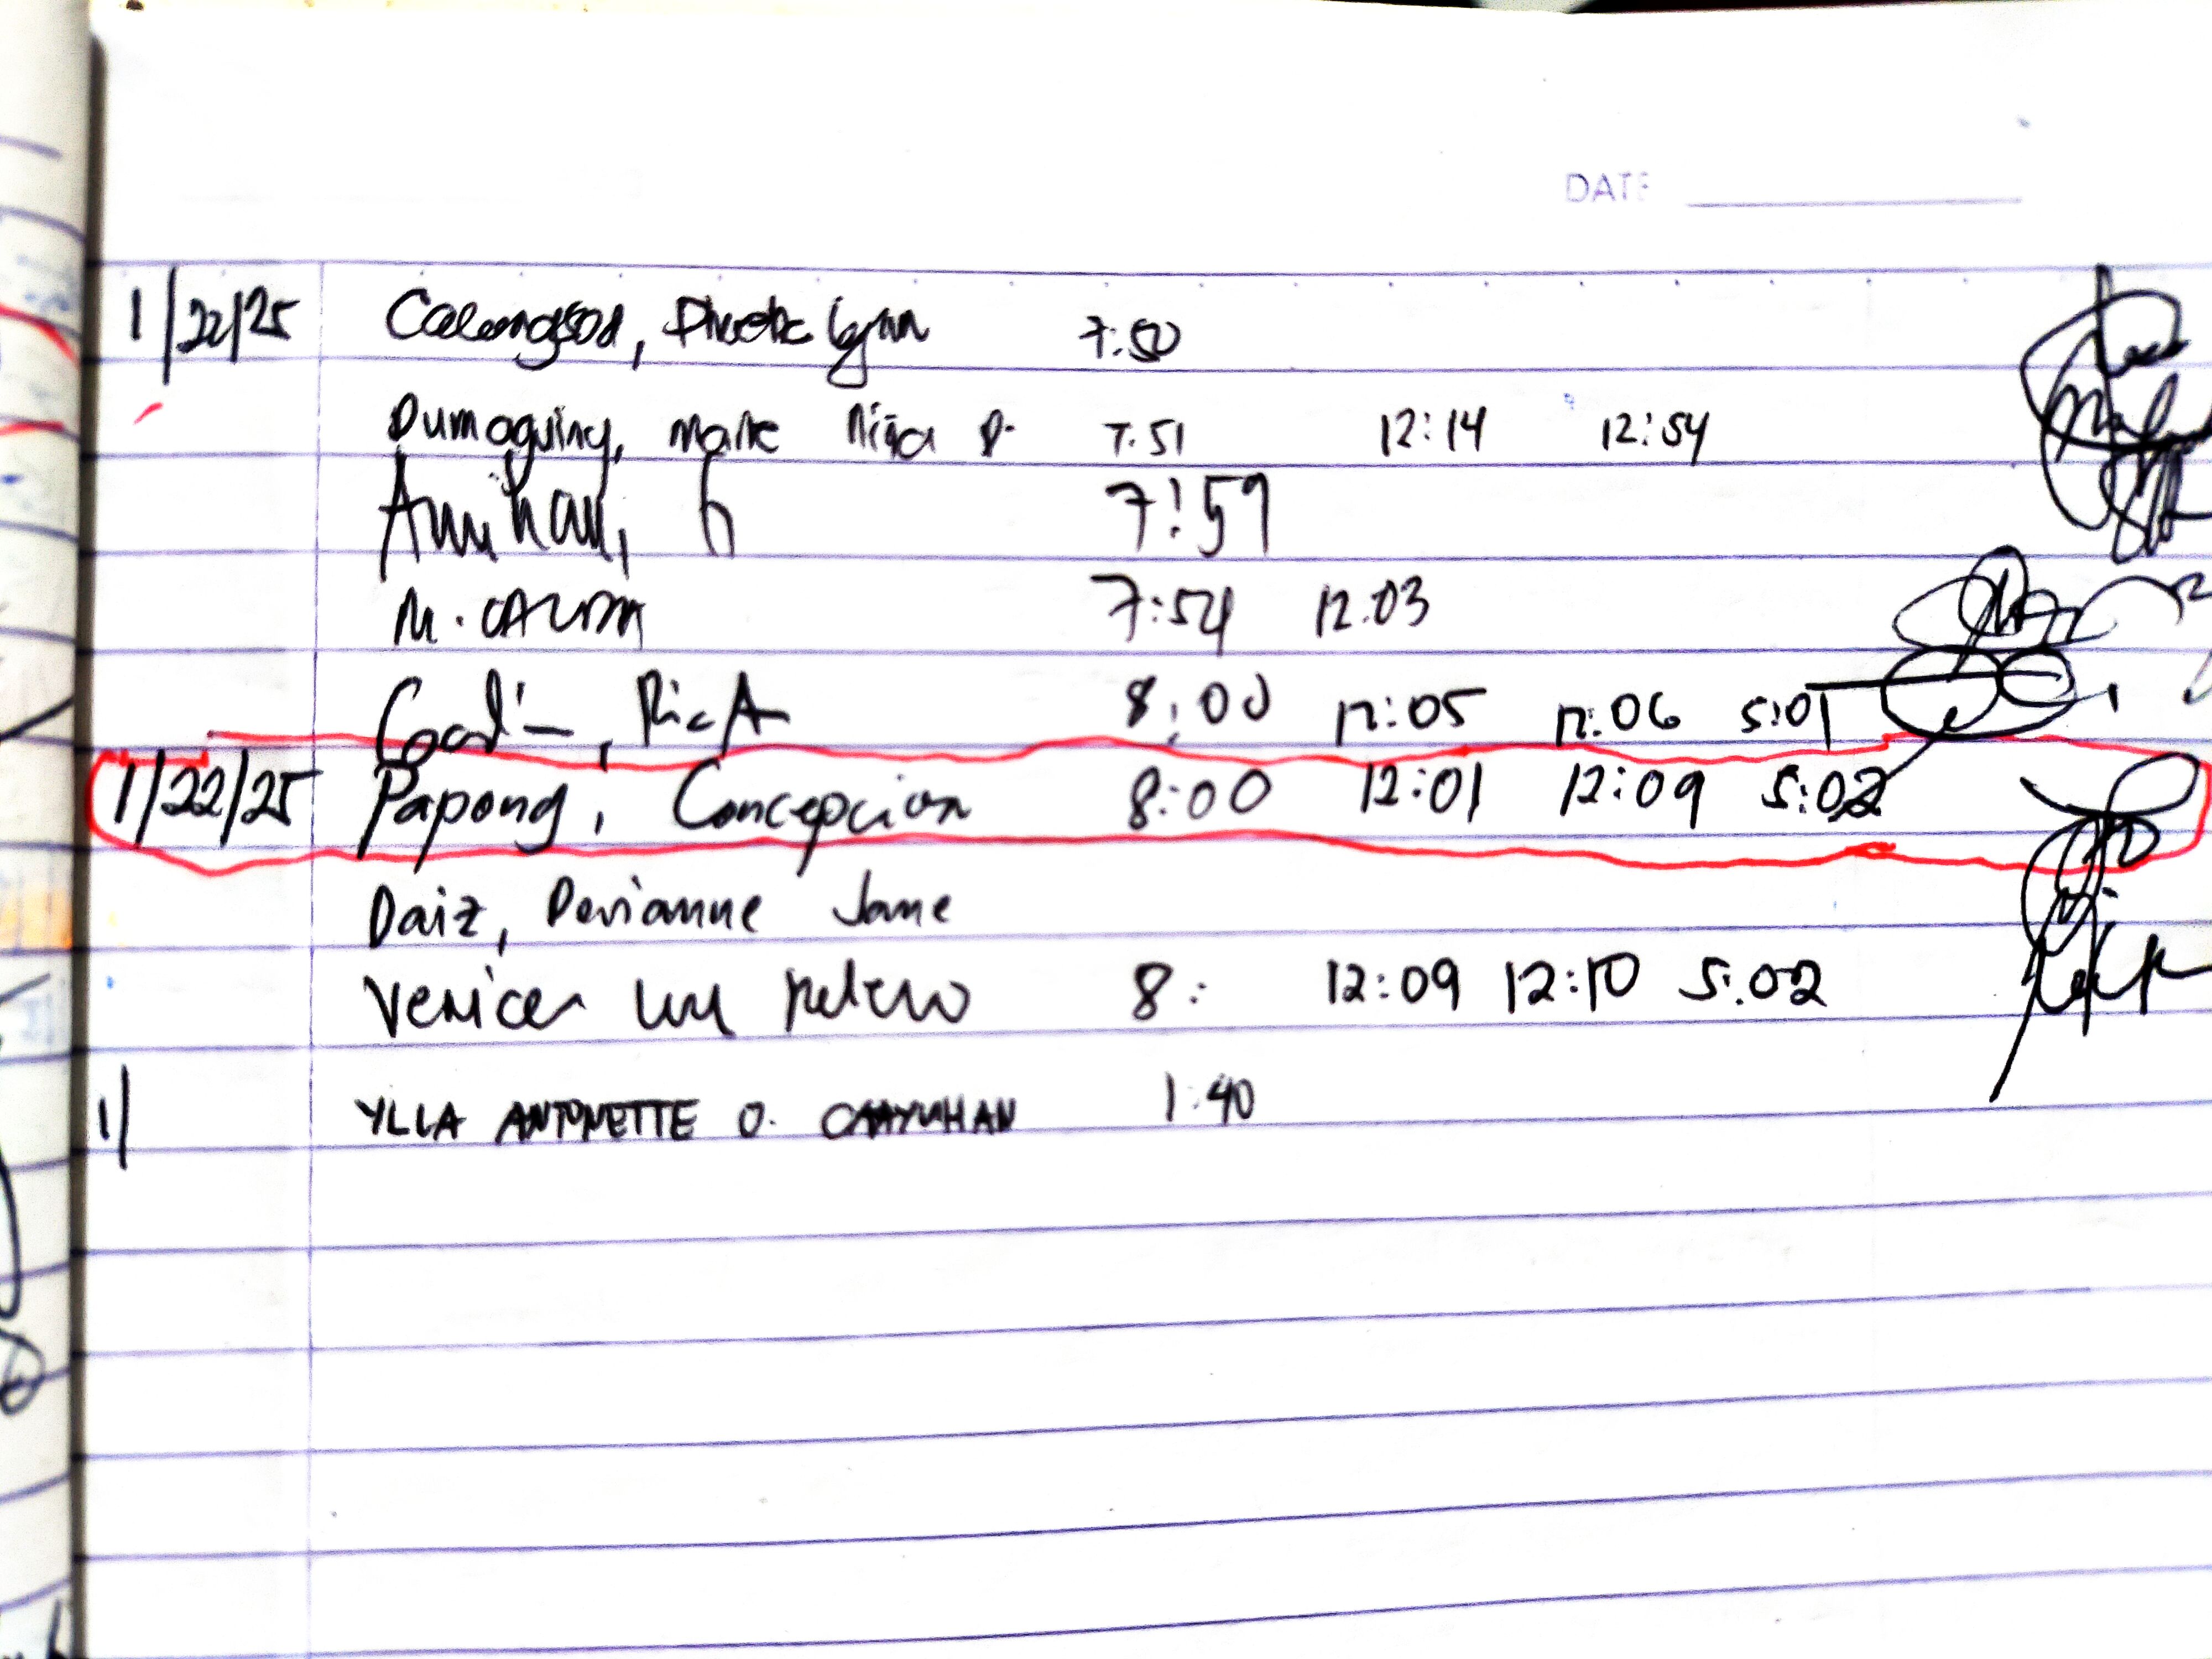 DATE
1/22/25 Calongsod, Lynn 7:50
Dumaguing, Marie Niña P. 7:51 12:14 12:54
Amihan, G 7:59
M. 7:54 12:03
Rica 8:00 12:05 12:06 5:01
1/22/25 Papong, Concepcion 8:00 12:01 12:09 5:02
Daiz, Devianne Jane
Venice 8: 12:09 12:10 5:02
1/ YLLA ANTONETTE O. CAAYUHAN 1:40